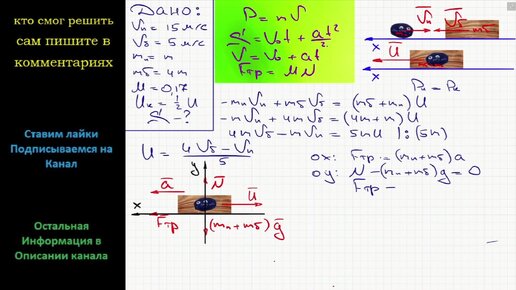 кто смог решить
сам пишите в
комментариях
Ставим лайки
Подписываемся на
Канал
Остальная
Информация в
Описании канала
Дано:
Vп = 15 м/с
Vб = 5 м/с
mп = m
mб = 4m
μ = 0,17
Uк = ½ U
S - ?
P = mV
S = V₀t + at²/2
V = V₀ + at
Fтр = μN
Vп Vб
mб
x
U
x
Pн = Pк
-mпVп + mбVб = (mб + mп)U
-mVп + 4mVб = (4m + m)U
4mVб - mVп = 5mU |:(5m)
U = (4Vб - Vп)/5
ox: Fтр = (mп + mб)a
oy: N - (mп + mб)g = 0
Fтр -
y
a N
U
x
Fтр (mп + mб)g